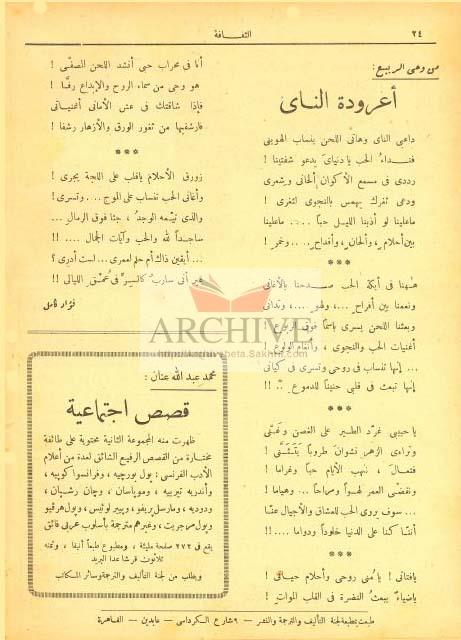 ٢٤
الثقافة
من وحى الربيع :
أغرودة الناى
داعبى الناى وهاتى اللحن ينساب الهوينى
فنداء الحب يا دنياى يدعو شفتينا !
رددى فى مسمع الأكوان ألحانى وشعرى
ودعى ثغرك يهمس بالنجوى لثغرى !
ما علينا لو أذبنا الليل حبا .... ما علينا
بين أحلام ، وألحان ، وأقداح ... وخمر !
ههنا فى أيكة الحب صدحنا بالأغانى
ونعمنا بين أفراح ... ، ولهو ... ، وتدانى
وبعثنا اللحن يسرى باسما فوق الربوع !
أغنيات الحب والنجوى ، وأنغام الولوع !
... إنها تنساب فى روحى وتسرى فى كيانى
إنها تبعث فى قلبى حنينا للدموع .. !!
***
يا حبيبى غرّد الطير على الغصن وغنّى
وتراءى الزهر نشوان طروبا يتثنّى !
فتعال ، ننهب الأيام حبا وغراما !
ونقضّى العمر لهوا ومراحا ... وهياما !
... سوف يروى الحب للعشاق والأجيال عنّا
أننا كنا على الدنيا خلودا ودواما ... !!
***
يا فتانى ! يا منى روحى وأحلام حياتى !
يا ضياء يبعث النضرة فى القلب الموات !
أنا فى محراب حبى أنشد اللحن المصفّى !
هو وحى من سماء الروح والإبداع رفّا !
فإذا شاقتك فى عش الأمانى أغنياتى
فارشفيها من ثغور الورق والأزهار رشفا !
***
زورق الأحلام يا قلب على اللجة يجرى !
وأغانى الحب تنساب على الموج ... وتسرى !
والذى تيّمه الوجد ، جثا فوق الرمال ...
ساجدا لله والحب وآيات الجمال .... !!
... أيقين ذاك أم حلم لعمرى ... لست أدرى ؟
غير أنى سارب كالسر فى عمق الليالى !!
فؤاد كامل
محمد عبد الله عنان :
قصص اجتماعية
ظهرت منه المجموعة الثانية محتوية على طائفة
مختارة من القصص الرفيع الشائق لعدة من أعلام
الأدب الفرنسى : بول بورجيه ، وفرانسوا كوپيه ،
وأندريه تيرييه ، وموپاسان ، وچان رشپان ،
ودوديه ، ومارسل پريفو ، وپيير لوئيس ، وپول هرفيو
وپول مرجريت ، وغيرهم مترجمة بأسلوب عربى فائق
يقع فى ٢٧٢ صفحة مليئة ، ومطبوع طبعا أنيقا ، وثمنه
ثلاثون قرشا عدا البريد
ويطلب من لجنة التأليف والترجمة وسائر المكاتب
طبعت بمطبعة لجنة التأليف والترجمة والنشر - ٩ شارع الكرداسى - عابدين - القاهرة
ARCHIVE
http://Archivebeta.Sakhrit.com